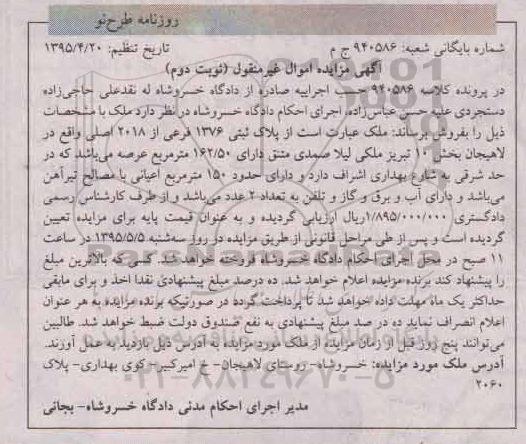 روزنامه طرح‌نو
شماره بایگانی شعبه: ۹۴۰۵۸۶ ج م
تاریخ تنظیم: ۱۳۹۵/۴/۲۰
آگهی مزایده اموال غیرمنقول (نوبت دوم)
در پرونده کلاسه ۹۴۰۵۸۶ حسب اجراییه صادره از دادگاه خسروشاه له نقدعلی حاجی‌زاده
دستجردی علیه حسن عباس‌زاده، اجرای احکام دادگاه خسروشاه در نظر دارد ملک با مشخصات
ذیل را بفروش برساند: ملک عبارت است از پلاک ثبتی ۱۳۷۶ فرعی از ۲۰۱۸ اصلی واقع در
لاهیجان بخش ۱۰ تبریز ملکی لیلا صمدی متنق دارای ۱۶۲/۵۰ مترمربع عرصه می‌باشد که در
حد شرقی به شارع بهداری اشراف دارد و دارای حدود ۱۵۰ مترمربع اعیانی با مصالح تیرآهن
می‌باشد و دارای آب و برق و گاز و تلفن به تعداد ۲ عدد می‌باشد و از طرف کارشناس رسمی
دادگستری ۱/۸۹۵/۰۰۰/۰۰۰ریال ارزیابی گردیده و به عنوان قیمت پایه برای مزایده تعیین
گردیده است و پس از طی مراحل قانونی از طریق مزایده در روز سه‌شنبه ۱۳۹۵/۵/۵ در ساعت
۱۱ صبح در محل اجرای احکام دادگاه خسروشاه فروخته خواهد شد. کسی که بالاترین مبلغ
را پیشنهاد کند برنده مزایده اعلام خواهد شد. ده درصد مبلغ پیشنهادی نقدا اخذ و برای مابقی
حداکثر یک ماه مهلت داده خواهد شد تا پرداخت گردد در صورتیکه برنده مزایده به هر عنوان
اعلام انصراف نماید ده در صد مبلغ پیشنهادی به نفع صندوق دولت ضبط خواهد شد. طالبین
می‌توانند پنج روز قبل از زمان مزایده از ملک مورد مزایده به آدرس ذیل بازدید به عمل آورند.
آدرس ملک مورد مزایده: خسروشاه- روستای لاهیجان- خ امیرکبیر- کوی بهداری- پلاک
۲۰۶۰
مدیر اجرای احکام مدنی دادگاه خسروشاه- بجانی
۰۲۱-۸۸۳۴۹۶۷۰-۵